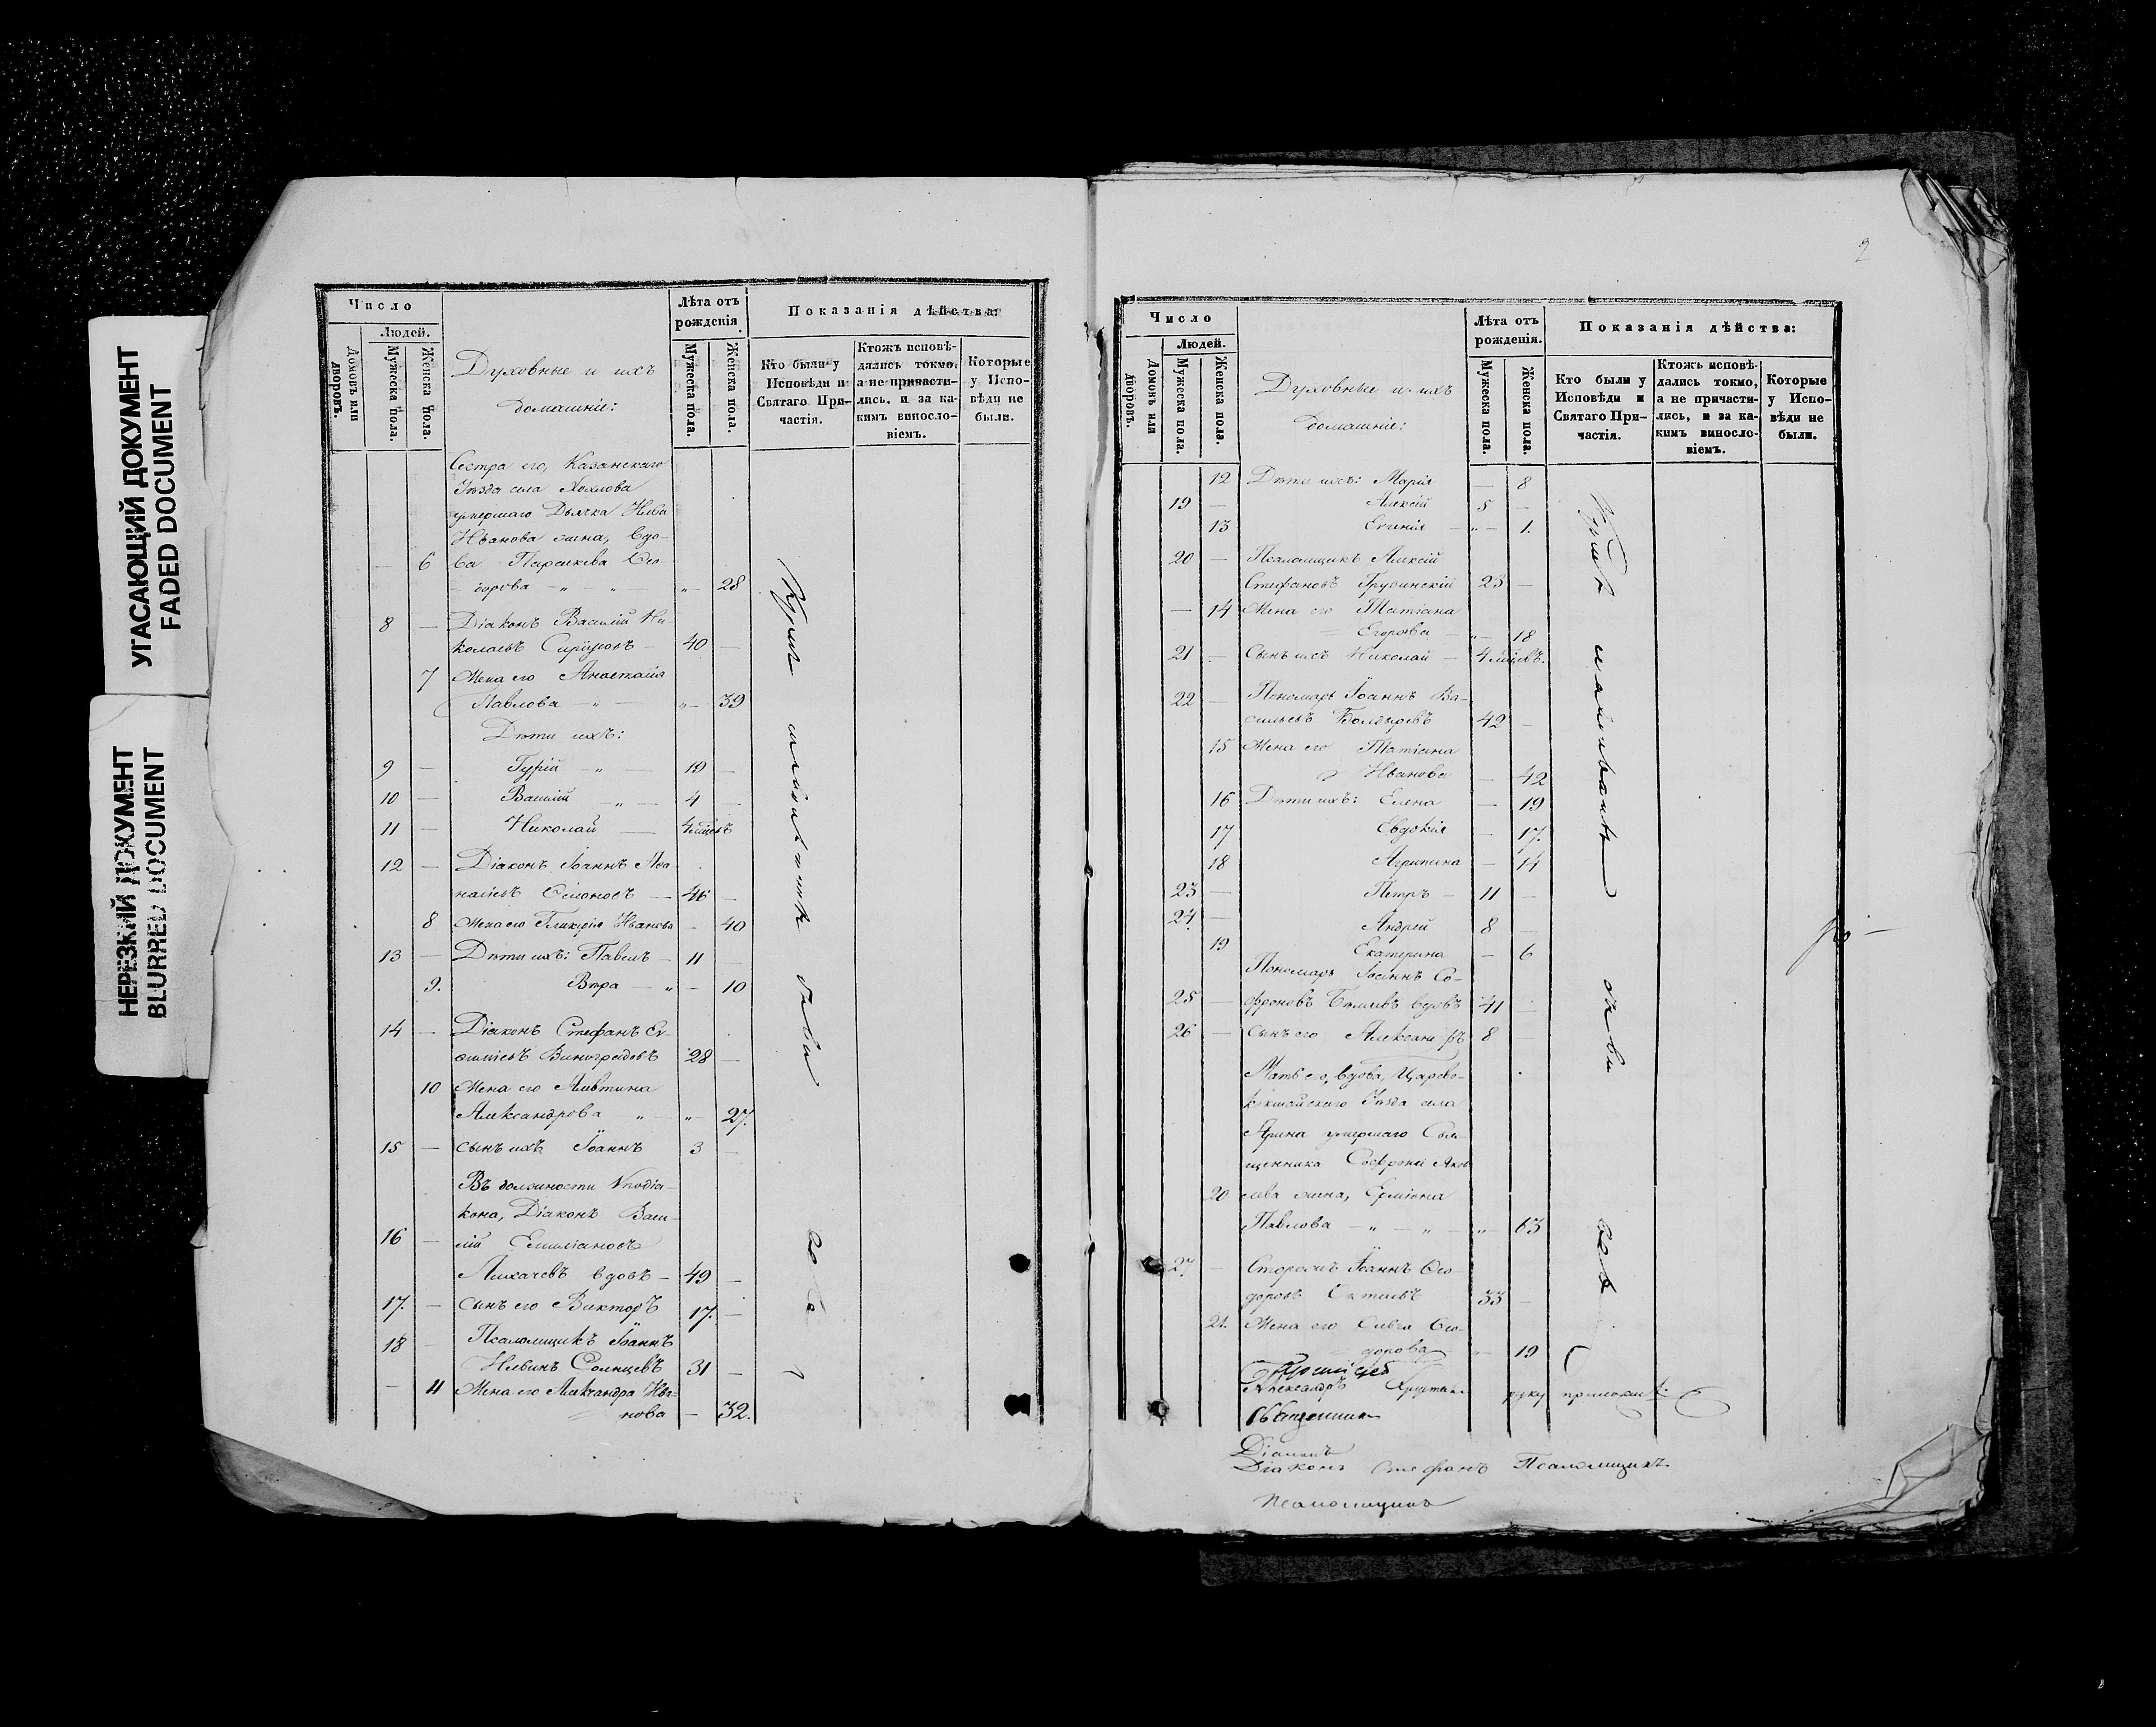 УГАСАЮЩИЙ ДОКУМЕНТ
FADED DOCUMENT
НЕРЕЗКИЙ ДОКУМЕНТ
BLURRED DOCUMENT
Число
Людей.
Домовъ или дворовъ.
Мужеска пола.
Женска пола.
Духовные и ихъ
домашніе:
Лѣта отъ
рожденія.
Мужеска пола.
Женска пола.
Показанія дѣйства:
Кто были у
Исповѣди и
Святаго При-
частія.
Ктожъ исповѣ-
дались токмо,
а не причасти-
лись, и за ка-
кимъ винословіемъ.
Которые
у Испо-
вѣди не
были.
Сестра его, Казанскаго
Уѣзда села Хохлова
умершаго Дьячка Ильи
Иванова жена, вдо-
6 ва Параскева Ѳео-
дорова 28
8 Діаконъ Василій Ни-
колаевъ 40
7 Жена его Анастасія
Павлова 39
Дѣти ихъ:
9 Гурій 19
10 Василій 4
11 Николай 4 мѣсяцевъ
12 Діаконъ Іоаннъ Аѳа-
насіевъ 46
8 Жена его Гликерія Иванова 40
13 Дѣти ихъ: Павелъ 11
9. Вѣра 10
14 Діаконъ Стефанъ Ев-
Виноградовъ 28
10 Жена его Алевтина
Александрова 27.
15 сынъ ихъ Іоаннъ 3
Въ должности Vподіа-
кона, Діаконъ Васи-
16 лій Емиліановъ
Лихачевъ вдовъ 49
17. сынъ его Викторъ 17.
18 Псаломщикъ Іоаннъ
Ильинъ Солнцевъ 31
11 Жена его Александра Ива-
нова 32.
2
Число
Людей.
Домовъ или дворовъ.
Мужеска пола.
Женска пола.
Духовные и ихъ
домашніе:
Лѣта отъ
рожденія.
Мужеска пола.
Женска пола.
Показанія дѣйства:
Кто были у
Исповѣди и
Святаго При-
частія.
Ктожъ исповѣ-
дались токмо,
а не причасти-
лись, и за ка-
кимъ винословіемъ.
Которые
у Испо-
вѣди не
были.
12 Дѣти ихъ: Марія 8
19 Алексій 5
13 Евгенія 1.
20 Псаломщикъ Алексій
Стефановъ Грузинскій 23
14 Жена его Татіана
Егорова 18
21 Сынъ ихъ Николай 4 мѣсяцевъ.
22 Пономарь Іоаннъ Ва-
сильевъ Болдыревъ 42
15 Жена его Татіана
Иванова 42
16 Дѣти ихъ: Елена 19
17 Евдокія 17.
18 Агрипина 14
23 Петръ 11
24. Андрей 8
19 Екатерина 6
Пономарь Іоаннъ Со-
25 фроновъ Бѣляевъ вдовъ 41
26 сынъ его Александръ 8
Мать его, вдова, Царево-
кокшайскаго Уѣзда села
Арина умершаго Свя-
щенника Софронія Яков
20 лева жена, Ерміона
Павлова 63
27. Сторожъ Іоаннъ Ѳео-
доровъ 33
21. Жена его Ольга Ѳео-
дорова 19
Александръ руку приложилъ.
Священникъ
Діаконъ
Діаконъ Стефанъ Псаломщикъ
Псаломщикъ